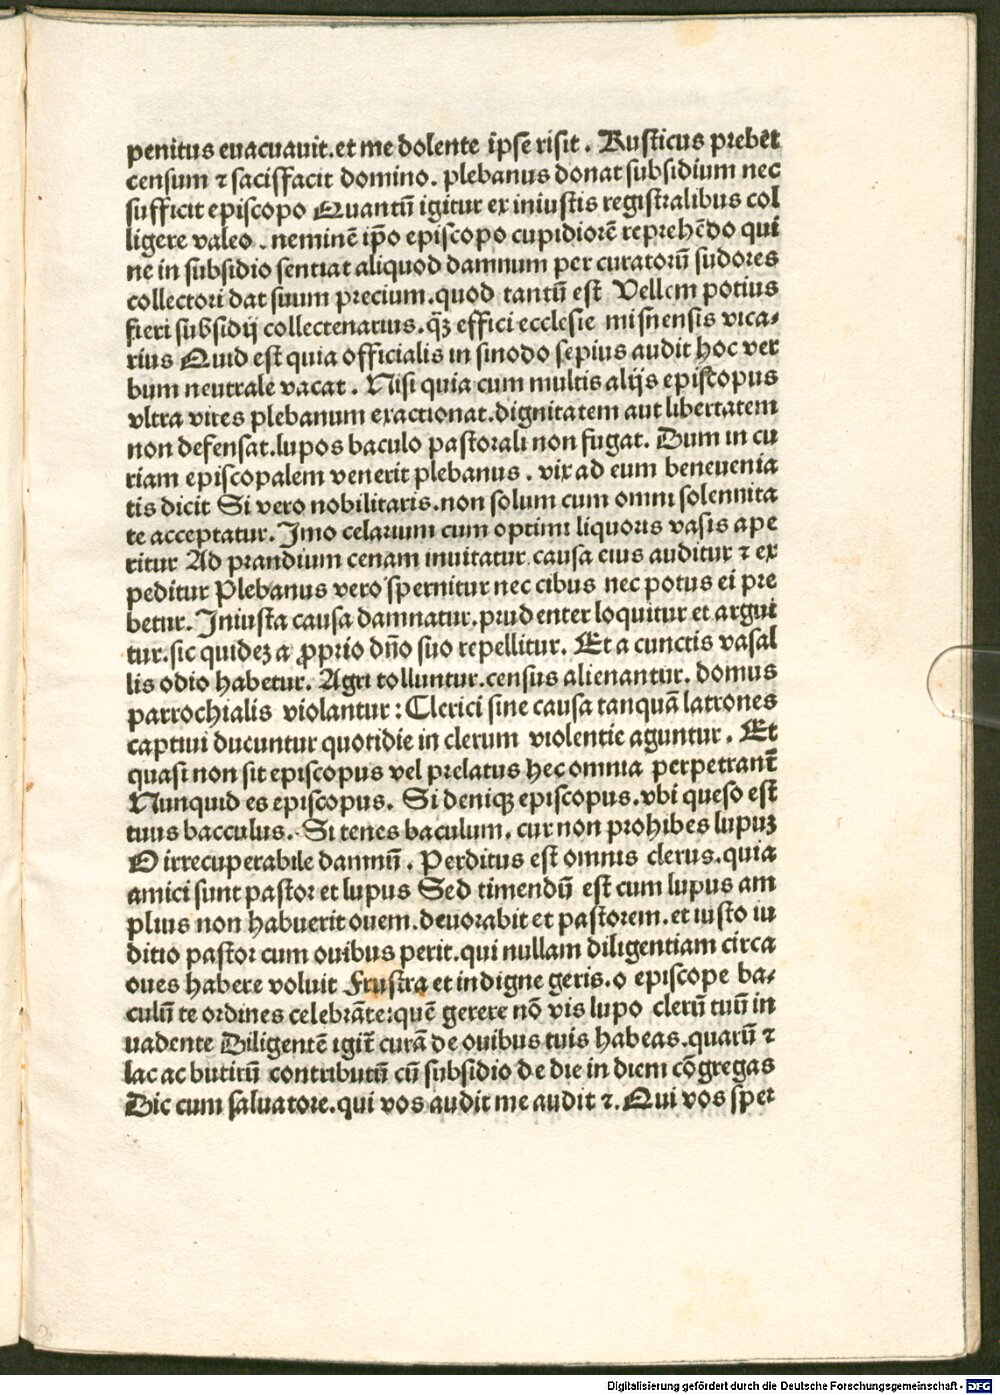 penitus euacuauit.et me dolente ipse risit. Rusticus prebēt
censum ⁊ saciffacit domino. plebanus donat subsidium nec
sufficit episcopo Quantū igitur ex iniustis registralibus col
ligere valeo. neminē ip̄o episcopo cupidiorē reprehēdo qui
ne in subsidio sentiat aliquod damnum per curatorū sudores
collectori dat suum precium.quod tantū est Vellem potius
fieri subsidij collectenarius.q̄ꝫ effici ecclesie misnensis vica⸗
rius Quid est quia officialis in sinodo sepius audit hoc ver
bum neutrale vacat. Nisi quia cum multis alijs episcopus
vltra vires plebanum exactionat.dignitatem aut libertatem
non defensat.lupos baculo pastorali non fugat. Dum in cu
riam episcopalem venerit plebanus. vix ad eum beneuenia
tis dicit Si vero nobilitaris.non solum cum omni solennita
te acceptatur. Imo celarium cum optimi liquoris vasis ape
ritur Ad prandium cenam inuitatur causa eius auditur ⁊ ex
peditur Plebanus vero spernitur nec cibus nec potus ei pre
betur. Iniusta causa damnatur.prud enter loquitur et argui
tur.sic quideꝫ a ꝓprio dn̄o suo repellitur. Et a cunctis vasal
lis odio habetur. Agri tolluntur.census alienantur. domus
parrochialis violantur: Clerici sine causa tanquā latrones
captiui ducuntur quotidie in clerum violentie aguntur. Et
quasi non sit episcopus vel prelatus hec omnia perpetrant̄
Nunquid es episcopus. Si deniqꝫ episcopus.vbi queso est
tuus bacculus. Si tenes baculum. cur non prohibes lupuꝫ
O irrecuperabile damnū. Perditus est omnis clerus.quia
amici sunt pastor et lupus Sed timendū est cum lupus am
plius non habuerit ouem.deuorabit et pastorem.et iusto iu
ditio pastor cum ouibus perit.qui nullam diligentiam circa
oues habere voluit Frustra et indigne geris.o episcope ba⸗
culū te ordines celebrāte:quē gerere nō vis lupo clerū tuū in
uadente Diligentē igit̄ curā de ouibus tuis habeas.quarū ⁊
lac ac butirū contributū cū subsidio de die in diem cōgregas
Dic cum saluatore.qui vos audit me audit ⁊. Qui vos sper
Digitalisierung gefördert durch die Deutsche Forschungsgemeinschaft - DFG